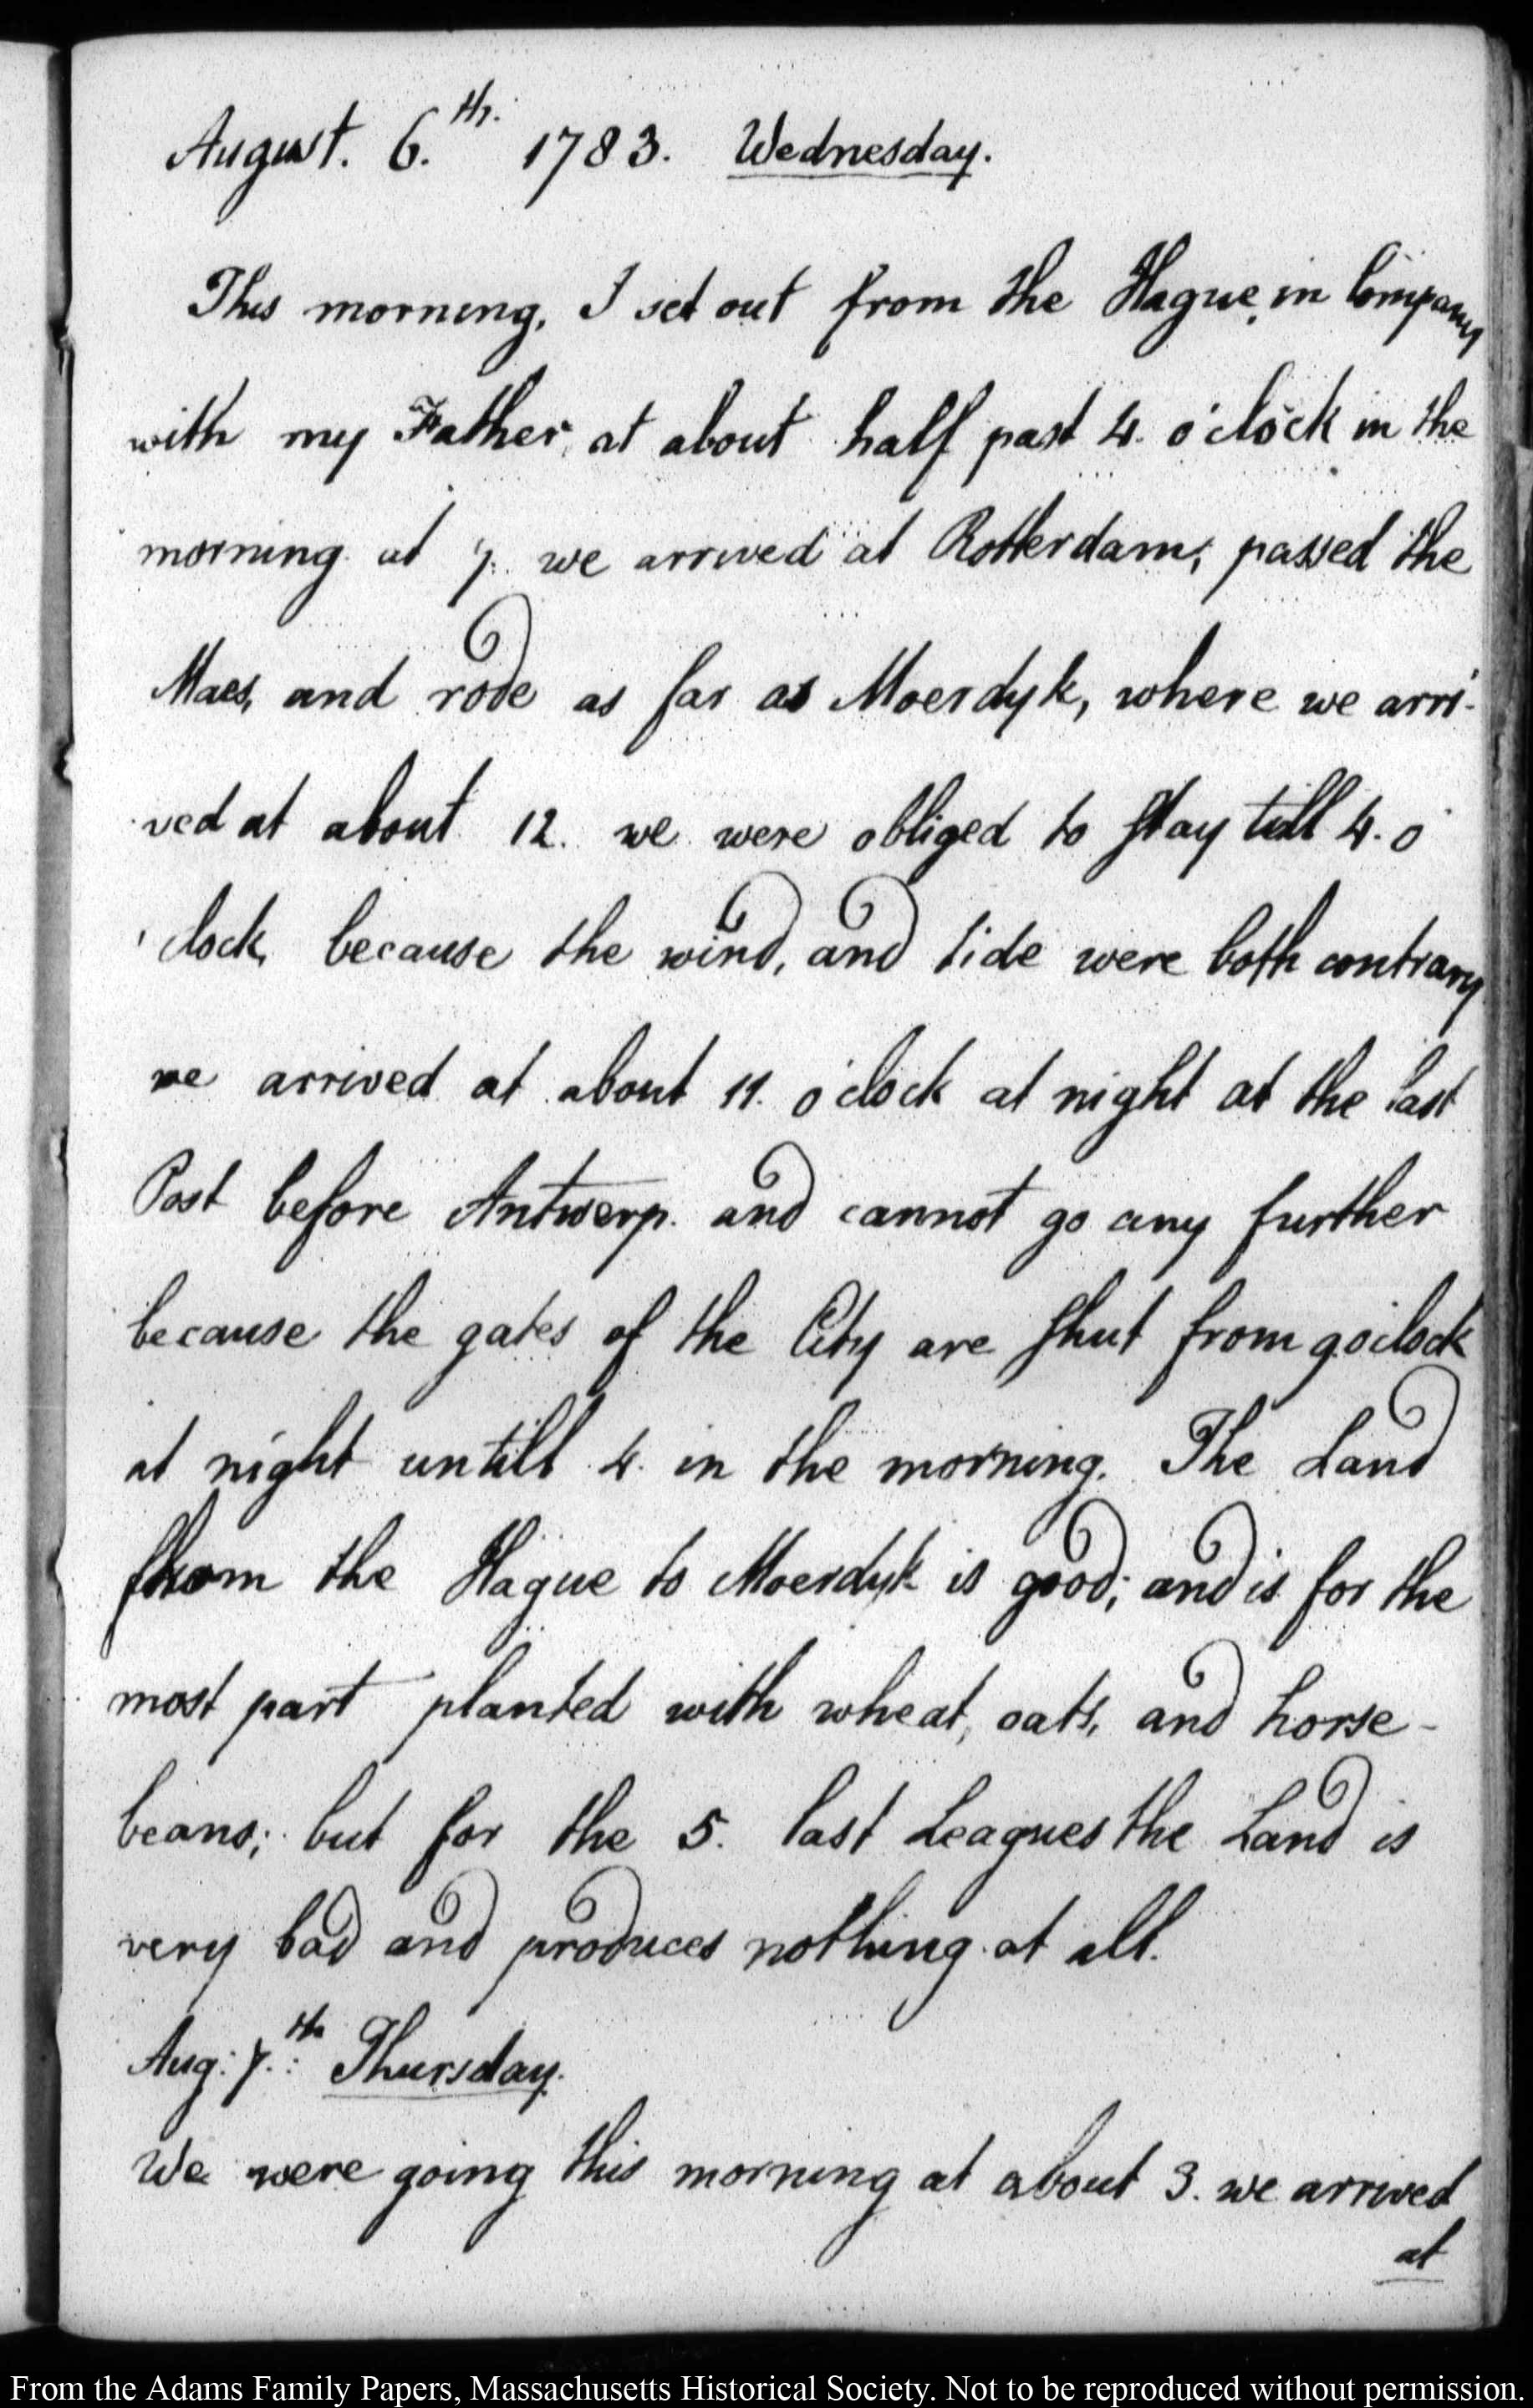 August. 6.th. 1783. Wednesday.
This morning, I set out from the Hague, in Company
with my Father, at about half past 4. o'clock in the
morning at 7. we arrived at Rotterdam, passed the
Maes, and rode as far as Moerdyk, where we arri-
ved at about 12. we were obliged to stay till 4. o'
'clock, because the wind, and tide were both contrary
we arrived at about 11. o'clock at night at the last
Post before Antwerp. and cannot go any further
because the gates of the City are shut from 9 o'clock
at night untill 4. in the morning. The Land
from the Hague to Moerdyk is good; and is for the
most part planted with wheat, oats, and horse-
beans; but for the 5. last Leagues the Land is
very bad and produces nothing at all.
Aug: 7.th: Thursday.
We were going this morning at about 3. we arrived
at
From the Adams Family Papers, Massachusetts Historical Society. Not to be reproduced without permission.